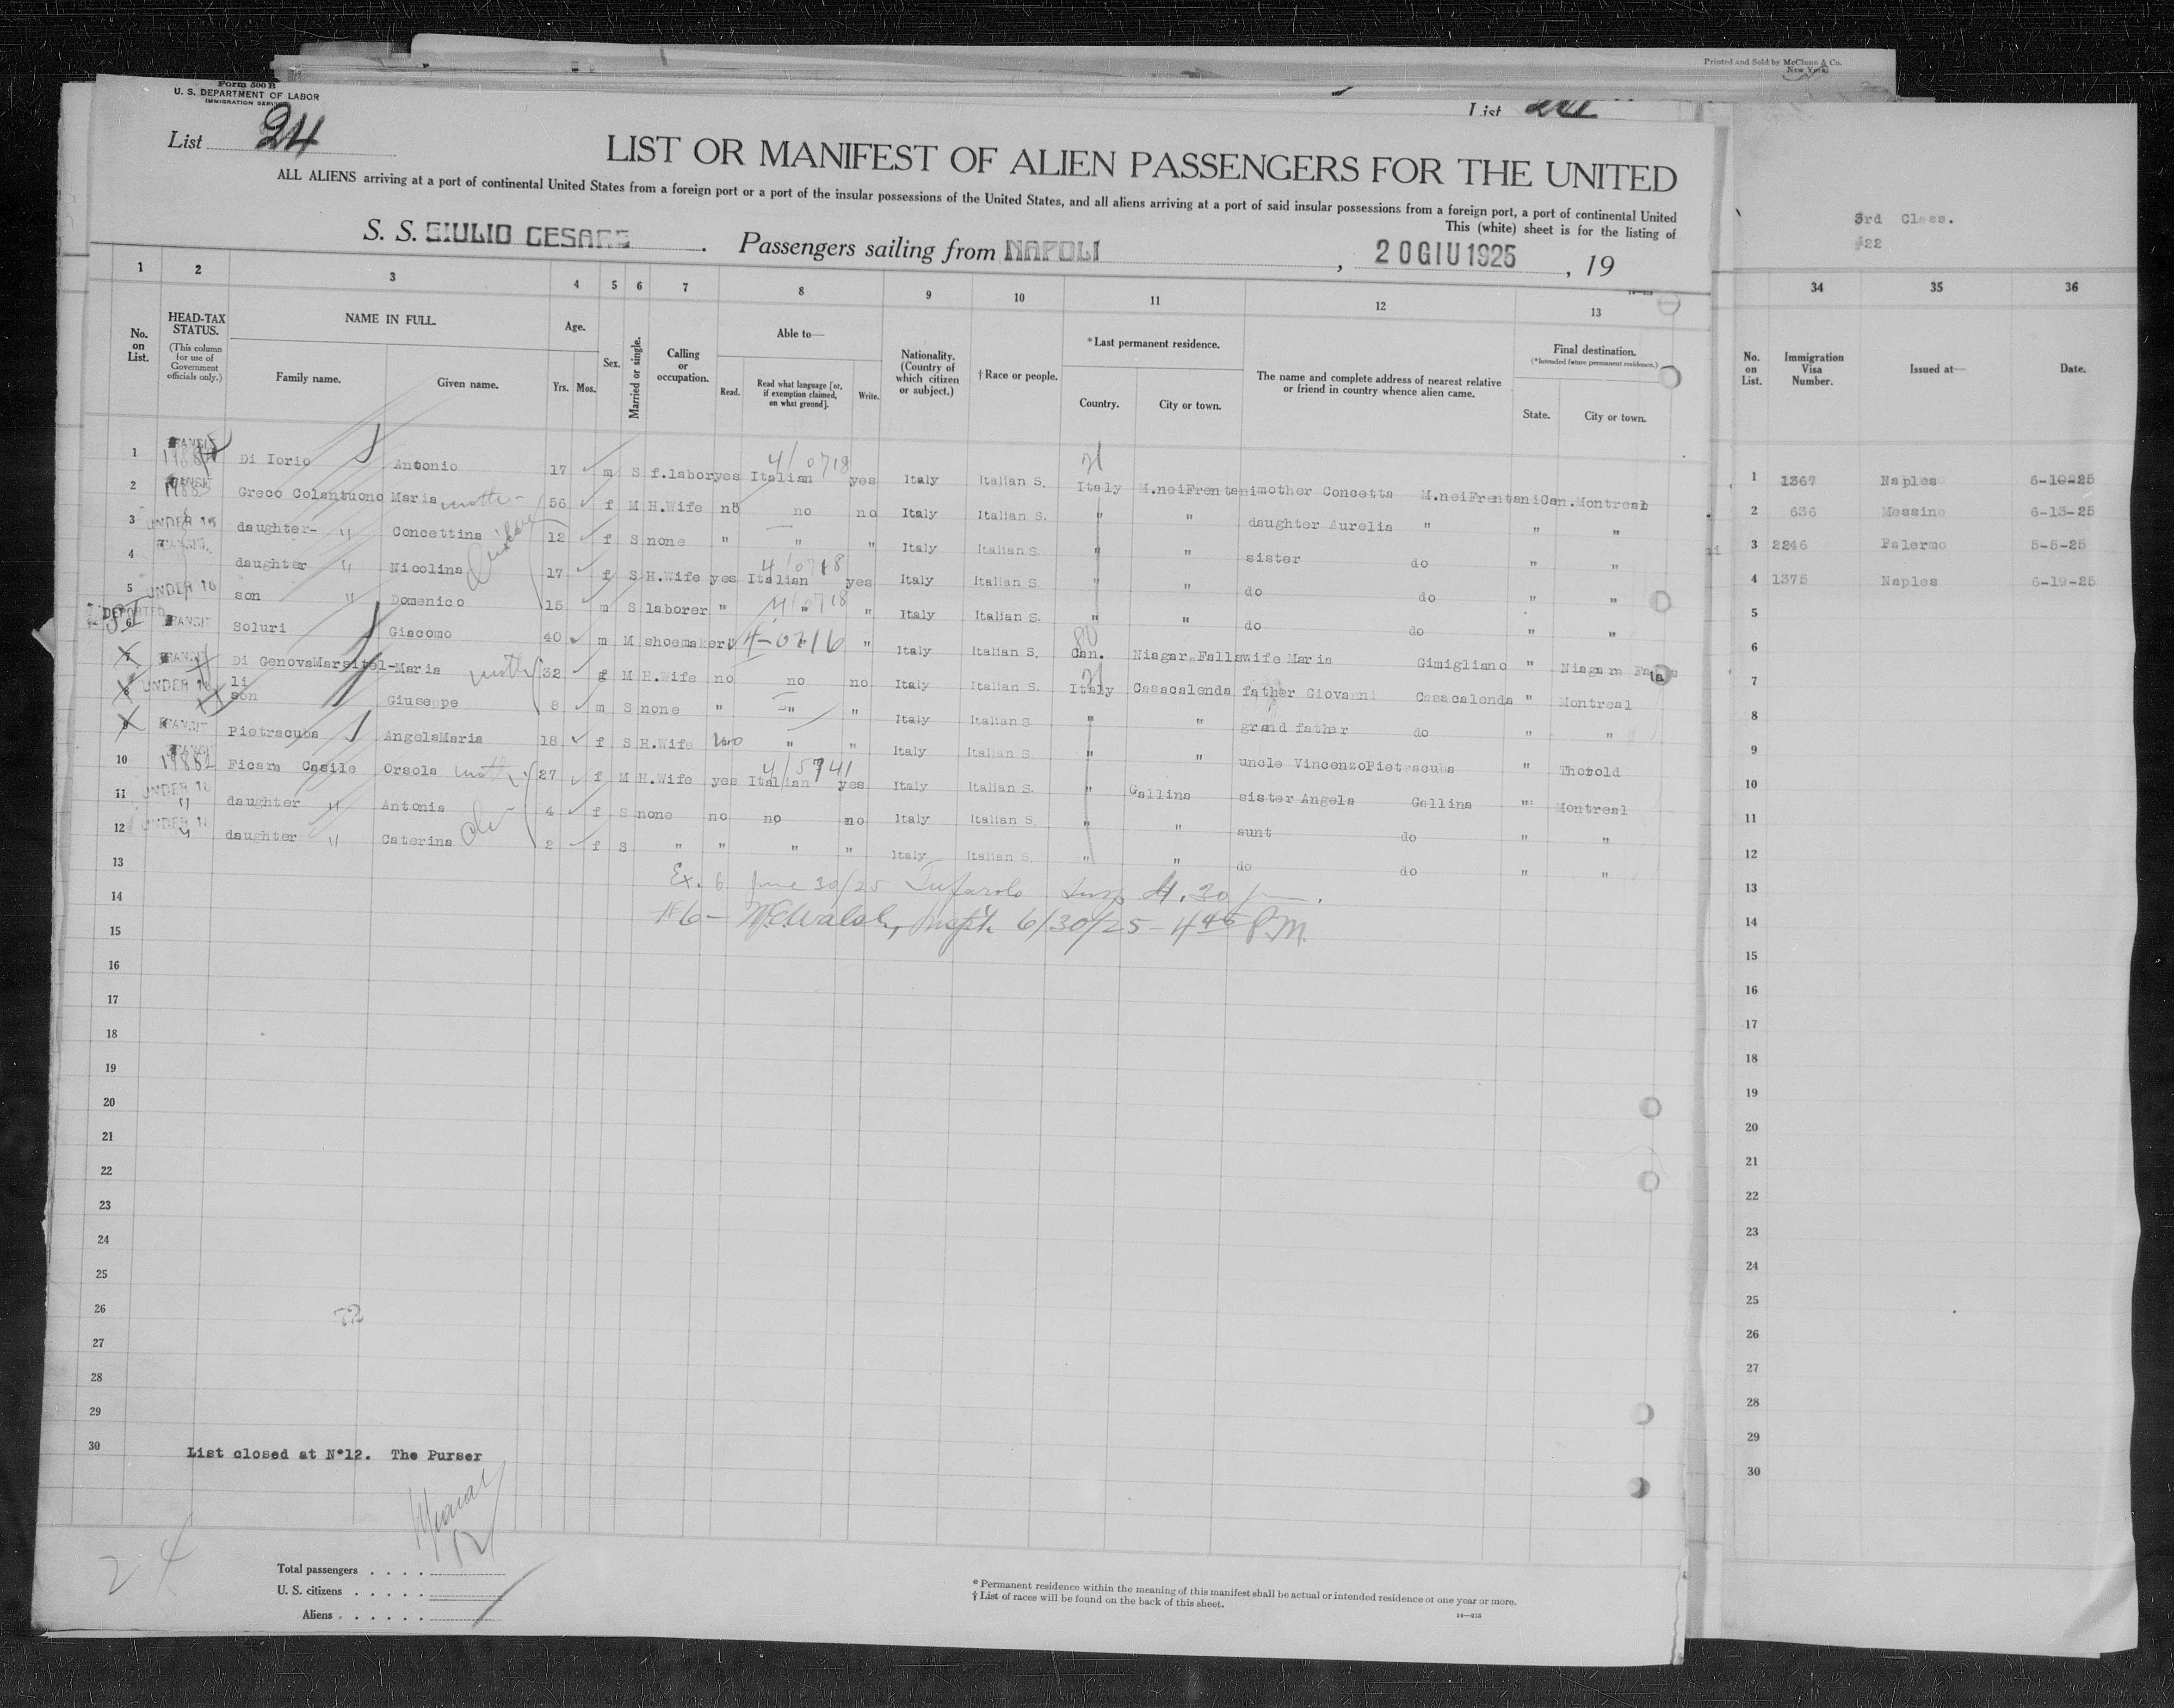 Printed and Sold by McClunn & Co.
New York
Form 500 B
U. S. DEPARTMENT OF LABOR
IMMIGRATION SERVICE
List 24
List
LIST OR MANIFEST OF ALIEN PASSENGERS FOR THE UNITED
ALL ALIENS arriving at a port of continental United States from a foreign port or a port of the insular possessions of the United States, and all aliens arriving at a port of said insular possessions from a foreign port, a port of continental United
This (white) sheet is for the listing of
S. S. GIULIO CESARE . Passengers sailing from NAPOLI , 20 GIU 1925 , 19
3rd Class.
22
1 2 3 4 5 6 7 8 9 10 11 12 13
34 35 36
No. on List.
HEAD-TAX STATUS.
(This column for use of Government officials only.)
NAME IN FULL.
Family name. Given name.
Age.
Yrs. Mos.
Sex.
Married or single.
Calling or occupation.
Able to—
Read.
Read what language [or, if exemption claimed, on what ground].
Write.
Nationality. (Country of which citizen or subject.)
† Race or people.
*Last permanent residence.
Country. City or town.
The name and complete address of nearest relative or friend in country whence alien came.
Final destination.
(*Intended future permanent residence.)
State. City or town.
No. on List.
Immigration Visa Number.
Issued at—
Date.
1 TRANSIT Di Iorio Antonio 17 m S f.labor yes Italian 4/0718 yes Italy Italian S. Italy M.neiFrentani mother Concetta M.neiFrentani Can. Montreal
2 TRANSIT 19883 Greco Colantuono Maria mother 56 f M H.Wife no no no Italy Italian S. " " daughter Aurelia " " "
3 UNDER 16 daughter- " Concettina 12 f S none " " " Italy Italian S. " " sister do " "
4 TRANSIT daughter " Nicolina 17 f S H.Wife yes Italian 4/0718 yes Italy Italian S. " " do do " "
5 UNDER 16 son " Domenico 15 m S laborer " " 4/0718 " Italy Italian S. " " do do " "
6 DEPORTED TRANSIT Soluri Giacomo 40 m M shoemaker " 4-0716 " Italy Italian S. Can. Niagar.Falls wife Maria Gimigliano " Niagara Falls
7 TRANSIT Di GenovaMarsitel-li Maria mother 32 f M H.Wife no no no Italy Italian S. Italy Casacalenda father Giovanni Casacalenda " Montreal
8 UNDER 16 son Giuseppe 8 m S none " " " Italy Italian S. " " grand father do " "
9 TRANSIT Pietracuba AngelaMaria 18 f S H.Wife no " " Italy Italian S. " " uncle VincenzoPietracuba " Thorold
10 TRANSIT 19882 Ficara Casile Orsola mother 27 f M H.Wife yes Italian 4/5741 yes Italy Italian S. " Gallina sister Angela Gallina " Montreal
11 UNDER 16 daughter " Antonia 4 f S none no no no Italy Italian S. " " aunt do " "
12 UNDER 16 daughter " Caterina 2 f S " " " " Italy Italian S. " " do do " "
13
14
15
16
17
18
19
20
21
22
23
24
25
26
27
28
29
30
Ex. 6 June 30/25 Insp 4.30 pm.
#6 – McWalsh, Insp't. 6/30/25 – 4 45 P.M.
1 1367 Naples 6-10-25
2 636 Messina 6-13-25
3 2246 Palermo 5-5-25
4 1375 Naples 6-19-25
5
6
7
8
9
10
11
12
13
14
15
16
17
18
19
20
21
22
23
24
25
26
27
28
29
30
List closed at N°12. The Purser
24
12
Total passengers . . . .
U. S. citizens . . . . .
Aliens . . . . . .
* Permanent residence within the meaning of this manifest shall be actual or intended residence of one year or more.
† List of races will be found on the back of this sheet.
14—213